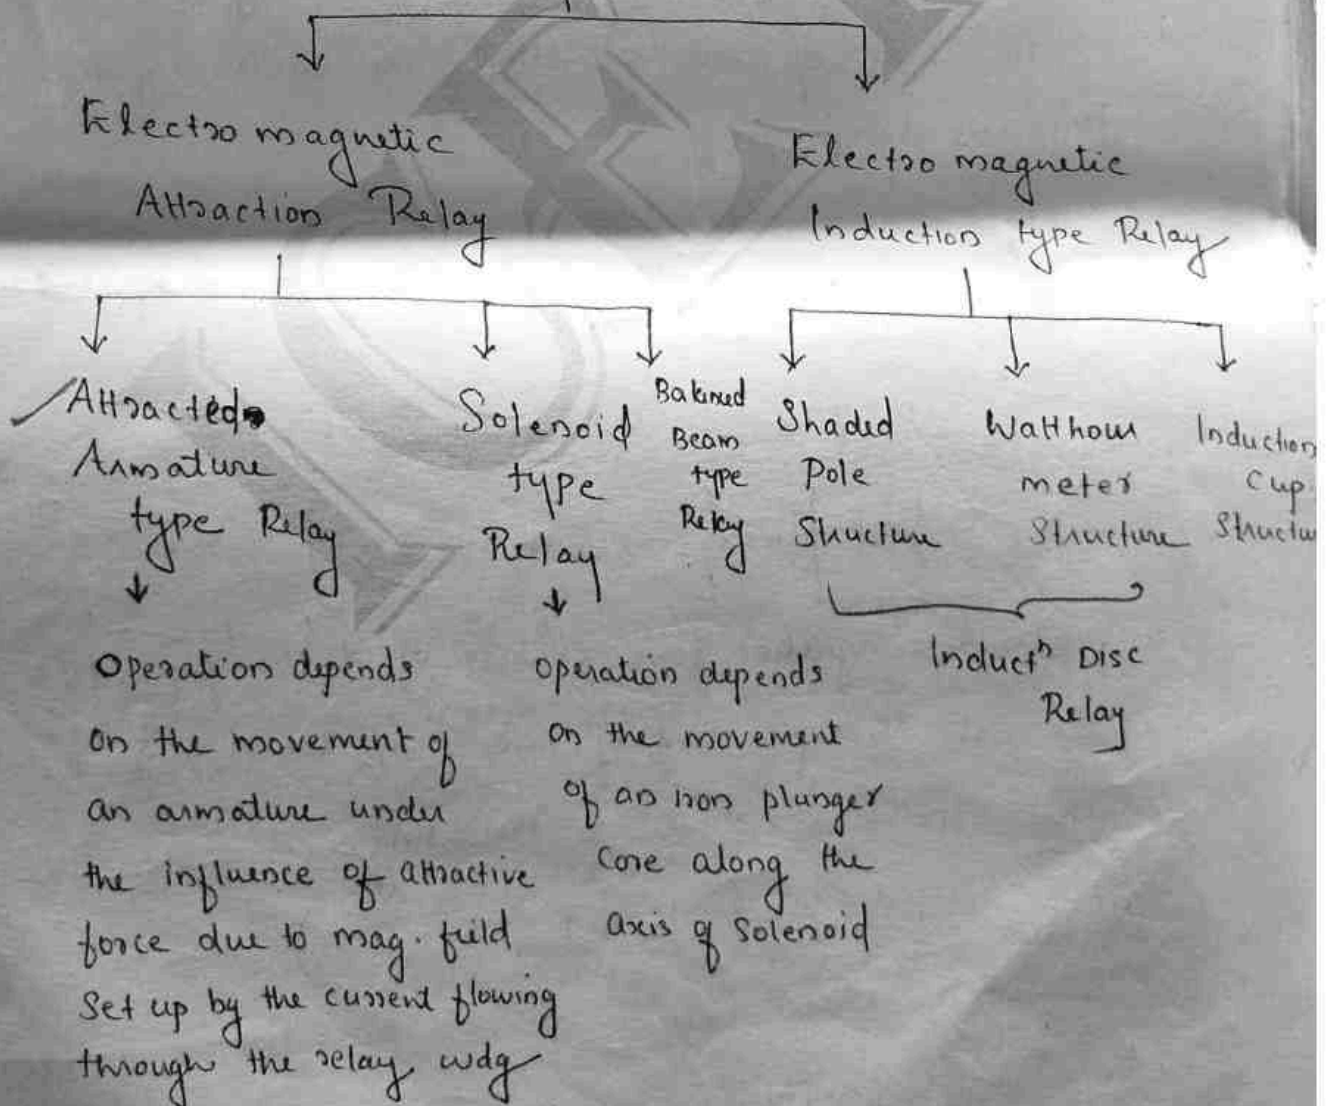 Electro magnetic
Attraction Relay
Electro magnetic
Induction type Relay
Attracted
Armature
type Relay
Solenoid
type
Relay
Balanced
Beam
type
Relay
Shaded
Pole
Structure
Watthour
meter
Structure
Induction
Cup
Structu
Operation depends
on the movement of
an armature under
the influence of attractive
force due to mag. field
Set up by the current flowing
through the relay wdg
Operation depends
on the movement
of an iron plunger
Core along the
axis of Solenoid
Inductn Disc
Relay